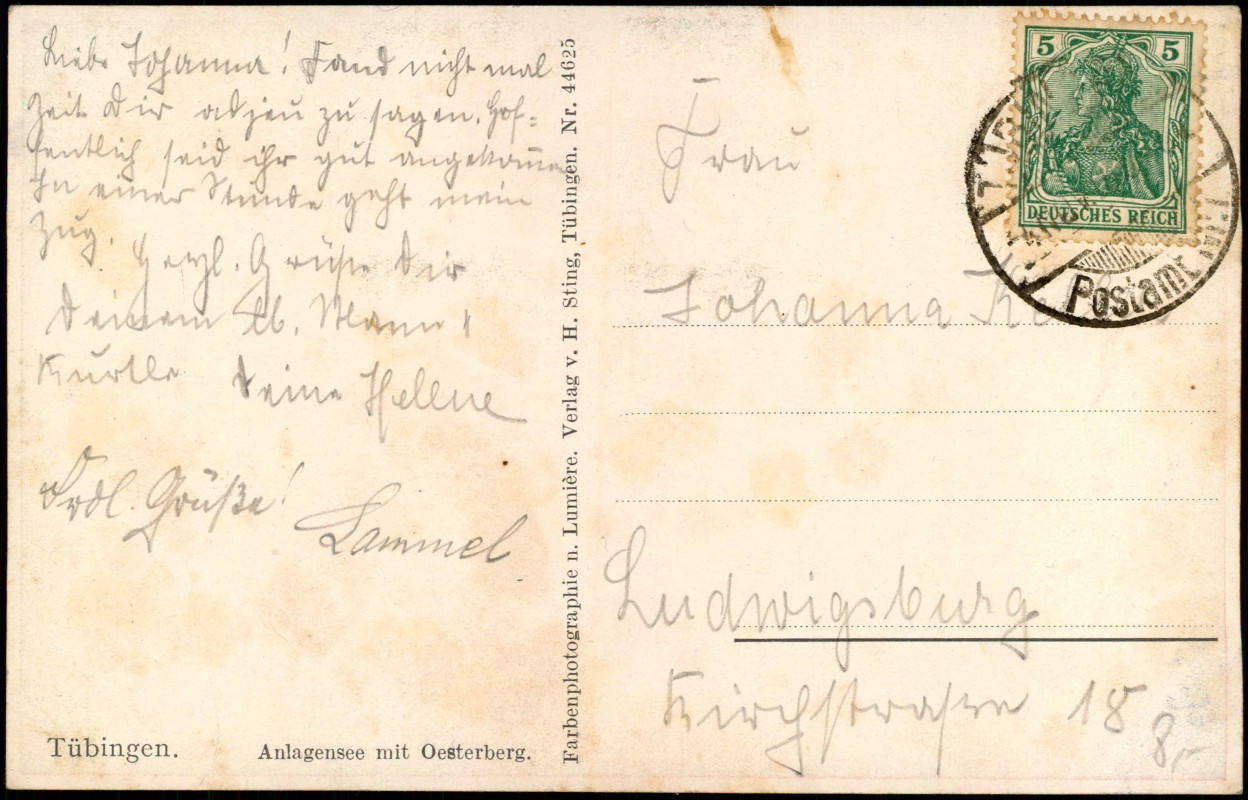 Liebe Johanna! Fand nicht mal
Zeit Dir adjeu zu sagen. Hof=
fentlich seid ihr gut angekommen
In einer Stunde geht mein
Zug. Herzl. Grüße Dir
Deinem lb. Mann &
Kurtle Deine Hellne
Frdl. Grüße!
Lammel
Tübingen.
Anlagensee mit Oesterberg.
Farbenphotographie n. Lumière. Verlag v. H. Sting, Tübingen. Nr. 44625
5 5
DEUTSCHES REICH
Postamt
Frau
Johanna
Ludwigsburg
Kirchstrasse 18
8,-